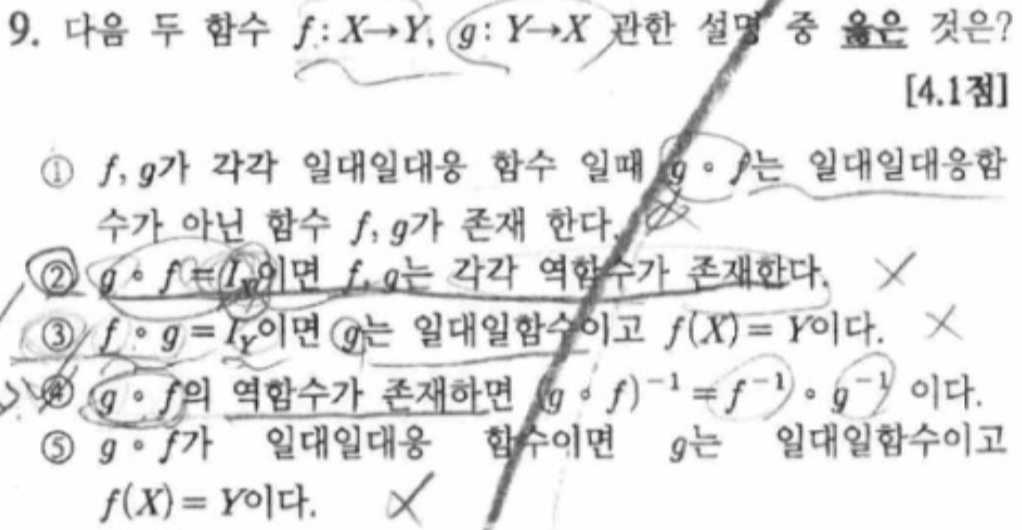 9. 다음 두 함수 f : X→Y, g : Y→X 관한 설명 중 옳은 것은?
[4.1점]
① f, g가 각각 일대일대응 함수 일때 g∘f는 일대일대응함
수가 아닌 함수 f, g가 존재 한다.
② g∘f = I_X이면 f, g는 각각 역함수가 존재한다.
③ f∘g = I_Y이면 g는 일대일함수이고 f(X) = Y이다.
④ g∘f의 역함수가 존재하면 (g∘f)⁻¹ = f⁻¹∘g⁻¹ 이다.
⑤ g∘f가 일대일대응 함수이면 g는 일대일함수이고
f(X) = Y이다.